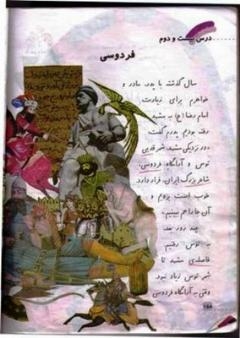 درس بیست و دوم
فردوسی
سال گذشته با پدر، مادر و
خواهرم برای زیارت
امام رضا (ع) به مشهد
رفته بودیم پدرم گفت:
در نزدیکی مشهد، شهر قدیمی
توس و آرامگاه فردوسی،
شاعر بزرگ ایران، قرار دارد
خوب است برویم و
آن جا را هم ببینیم.
چند روز بعد
به توس رفتیم
فاصله‌ی مشهد تا
شهر توس زیاد نبود
وقتی به آرامگاه فردوسی